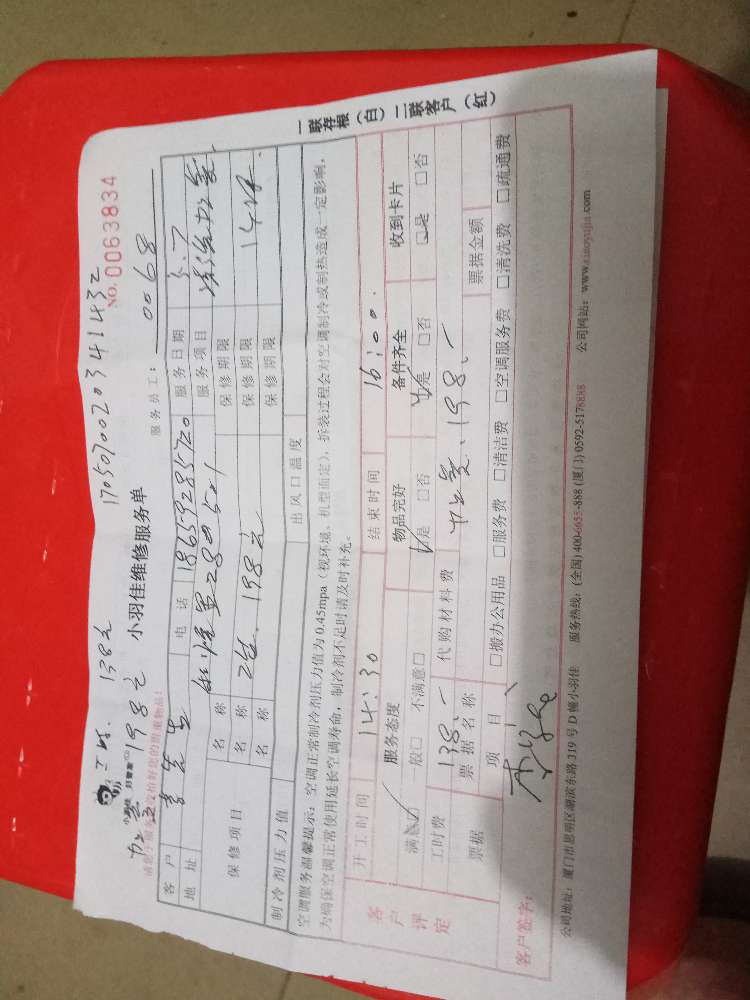 工时 138元
17050700203414 32
加氢 198元
小羽佳 好管家
小羽佳维修服务单
NO. 0063834
服务员工： 0068
客户 李先生 电话 18659285720 服务日期 5.7
地址 501 服务项目
保修项目 名称 保修期限
名称 198元 保修期限
名称 保修期限
制冷剂压力值 出风口温度
空调服务温馨提示：空调正常制冷剂压力值为0.45mpa（视环境、机型而定），拆装过程会对空调制冷或制热造成一定影响，
为确保空调正常使用延长空调寿命，制冷剂不足时请及时补充。
一联存根（白）二联客户（红）
客户评定
开工时间 14:30 结束时间 16:00.
服务态度 物品完好 备件齐全 收到卡片
满意 一般□ 不满意□ 是 □否 是 □否 □是 □否
工时费 138.- 代购材料费 198.-
票据 票据名称 票据金额
项目 □搬办公用品 □服务费 □清洁费 □空调服务费 □清洗费 □疏通费
客户签字：
公司地址：厦门市思明区湖滨东路319号D幢小羽佳 服务热线：(全国) 400-6655-888 (厦门) 0592-5178888 公司网站：www.xiaoyujia.com